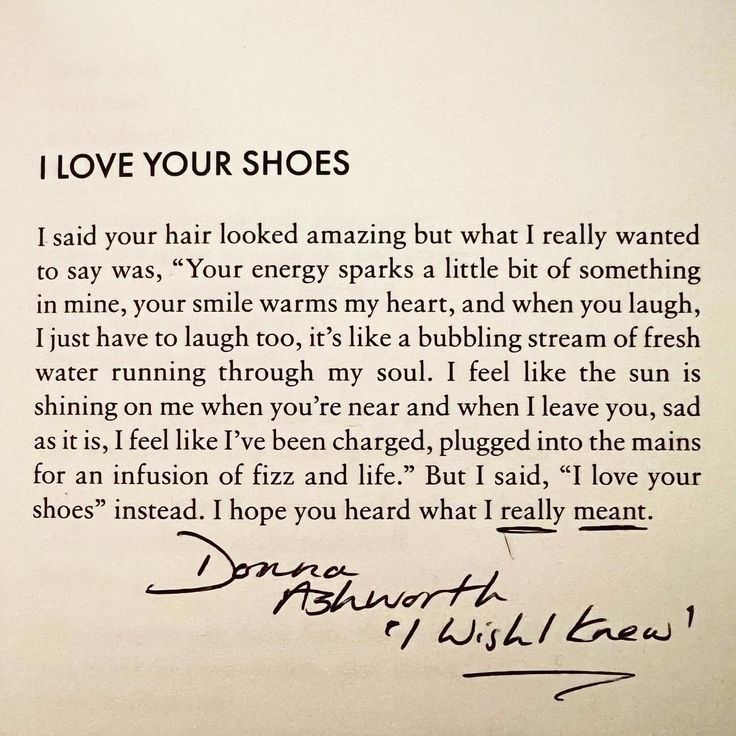 I LOVE YOUR SHOES
I said your hair looked amazing but what I really wanted
to say was, “Your energy sparks a little bit of something
in mine, your smile warms my heart, and when you laugh,
I just have to laugh too, it’s like a bubbling stream of fresh
water running through my soul. I feel like the sun is
shining on me when you’re near and when I leave you, sad
as it is, I feel like I’ve been charged, plugged into the mains
for an infusion of fizz and life.” But I said, “I love your
shoes” instead. I hope you heard what I really meant.
Donna
Ashworth
'I Wish I Knew'